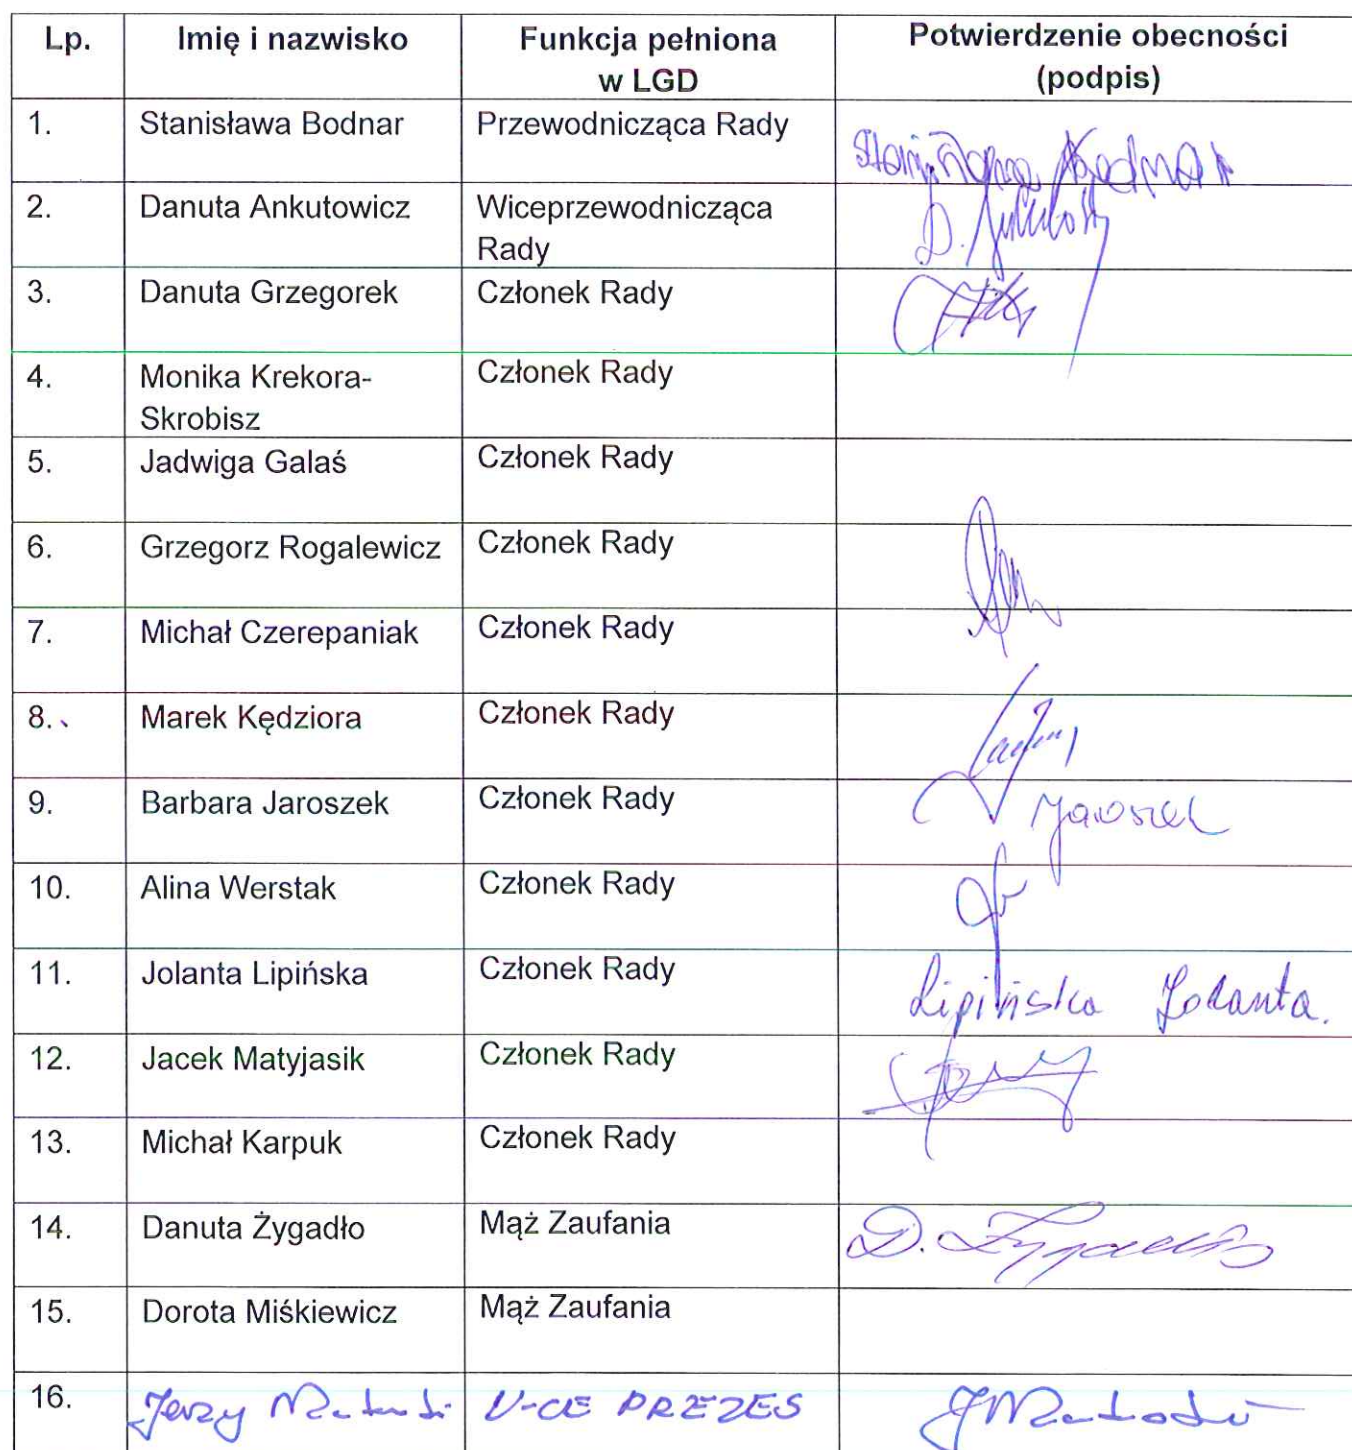 Lp. Imię i nazwisko Funkcja pełniona Potwierdzenie obecności
w LGD (podpis)
1. Stanisława Bodnar Przewodnicząca Rady Stanisława Bodnar
2. Danuta Ankutowicz Wiceprzewodnicząca D.
Rady
3. Danuta Grzegorek Członek Rady
4. Monika Krekora- Członek Rady
Skrobisz
5. Jadwiga Galaś Członek Rady
6. Grzegorz Rogalewicz Członek Rady
7. Michał Czerepaniak Członek Rady
8. Marek Kędziora Członek Rady
9. Barbara Jaroszek Członek Rady Jaroszek
10. Alina Werstak Członek Rady
11. Jolanta Lipińska Członek Rady Lipińska Jolanta.
12. Jacek Matyjasik Członek Rady
13. Michał Karpuk Członek Rady
14. Danuta Żygadło Mąż Zaufania D. Żygadło
15. Dorota Miśkiewicz Mąż Zaufania
16. Jerzy V-CE PREZES